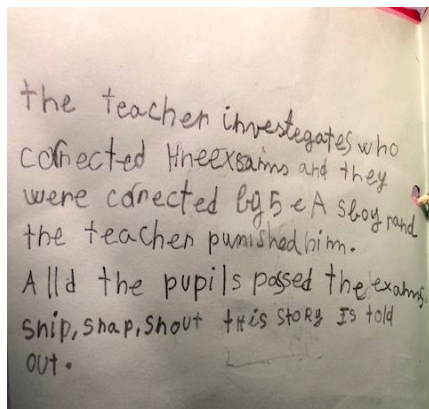 the teacher investegates who
corrected the exsams and they
were corrected by 5 e A sboy and
the teacher punished him.
Alld the pupils passed the exams.
snip, snap, snout tHis StoRy Is told
out.